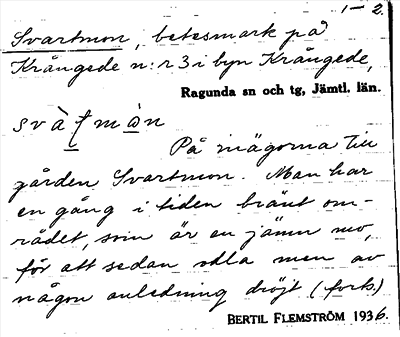 1-2.
Svartmon, betesmark på
Krångede n:r 3 i byn Krångede,
Ragunda sn och tg, Jämtl. län.
svàʈmàn
På inägorna till
gården Svartmon. Man har
en gång i tiden bränt om-
rådet, som är en jämn mo,
för att sedan odla men av
någon anledning dröjt (forts.)
BERTIL FLEMSTRÖM 1936.